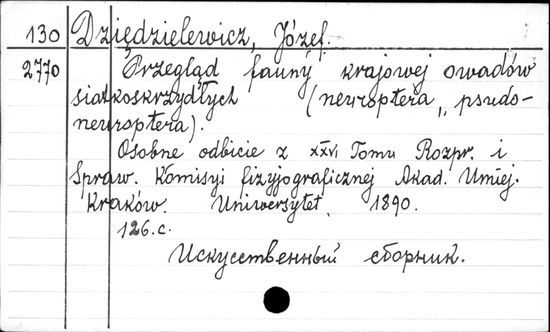 130 Dziędzielewicz, Józef.
2770 Przegląd fauny krajowej owadów
siatkoskrzydłych (neuroptera, psudo-
neuroptera).
Osobne odbicie z XXVI Tomu Rozpr. i
Spraw. Komisyi fizyjograficznej Akad. Umiej.
Kraków. Uniwersytet, 1890.
126.c.
Искусственный сборник.